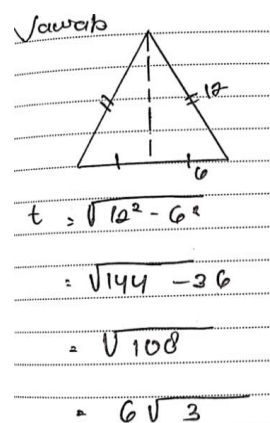 Jawab
12
6
t = √12² - 6²
= √144 - 36
= √108
= 6√3